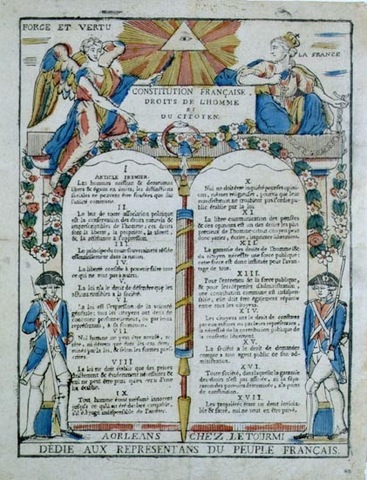 FORCE ET VERTU
LA FRANCE
CONSTITUTION FRANÇAISE.
DROITS DE L'HOMME
ET
DU CITOYEN.
I
ARTICLE PREMIER.
Les hommes naissent & demeurent
libres & égaux en droits; les distinctions
sociales ne peuvent être fondées que sur
l'utilité commune.
II.
Le but de toute association politique
est la conservation des droits naturels &
imprescriptibles de l'homme: ces droits
sont la liberté, la propriété, la sûreté,
& la résistance à l'oppression.
III.
Le principe de toute souveraineté réside
essentiellement dans la nation.
IV.
La liberté consiste à pouvoir faire tout
ce qui ne nuit pas à autrui.
V.
La loi n'a le droit de défendre que les
actions nuisibles à la société.
VI.
La loi est l'expression de la volonté
générale; tous les citoyens ont droit de
concourir personnellement, ou par leurs
représentans, à sa formation.
VII.
Nul homme ne peut être accusé,
ni détenu que dans les cas
par la loi, & selon les formes
VIII.
La loi ne doit établir que des peines
strictement & évidemment nécessaires &
nul ne peut être puni qu'en vertu d'une
loi établie.
IX.
Tout homme étant présumé innocent
jusqu'à ce qu'il ait été déclaré coupable,
s'il est jugé indispensable de l'arrêter.
X.
Nul ne doit être inquiété pour ses opinions,
mêmes religieuses, pourvu que leur
manifestation ne trouble pas l'ordre public
établie par la loi.
XI.
La libre communication des pensées
& des opinions est un des droits les plus
précieux de l'homme: tout citoyen peut
donc parler, écrire, imprimer librement.
XII.
La garantie des droits de l'homme & du
citoyen nécessite une force publique:
cette force est donc instituée pour l'avantage
de tous.
XIII.
Pour l'entretien de la force publique,
& pour les dépenses d'administration,
une contribution commune est indispensable;
elle doit être également répartie
entre tous les citoyens.
XIV.
Les citoyens ont le droit de constater
par eux mêmes ou par leurs représentans,
la nécessité de la contribution publique, de
la consentir librement.
XV.
La société a le droit de demander
compte à tout agent public de son administration.
XVI.
Toute société, dans laquelle la garantie
des droits n'est pas assurée, ni la séparation
des pouvoirs déterminée, n'a point
de constitution.
XVII.
Les propriétés étant un droit inviolable
& sacré, nul ne peut en être privé.
A ORLEANS CHEZ LETOURMI
DÉDIÉ AUX REPRESENTANS DU PEUPLE FRANCAIS.